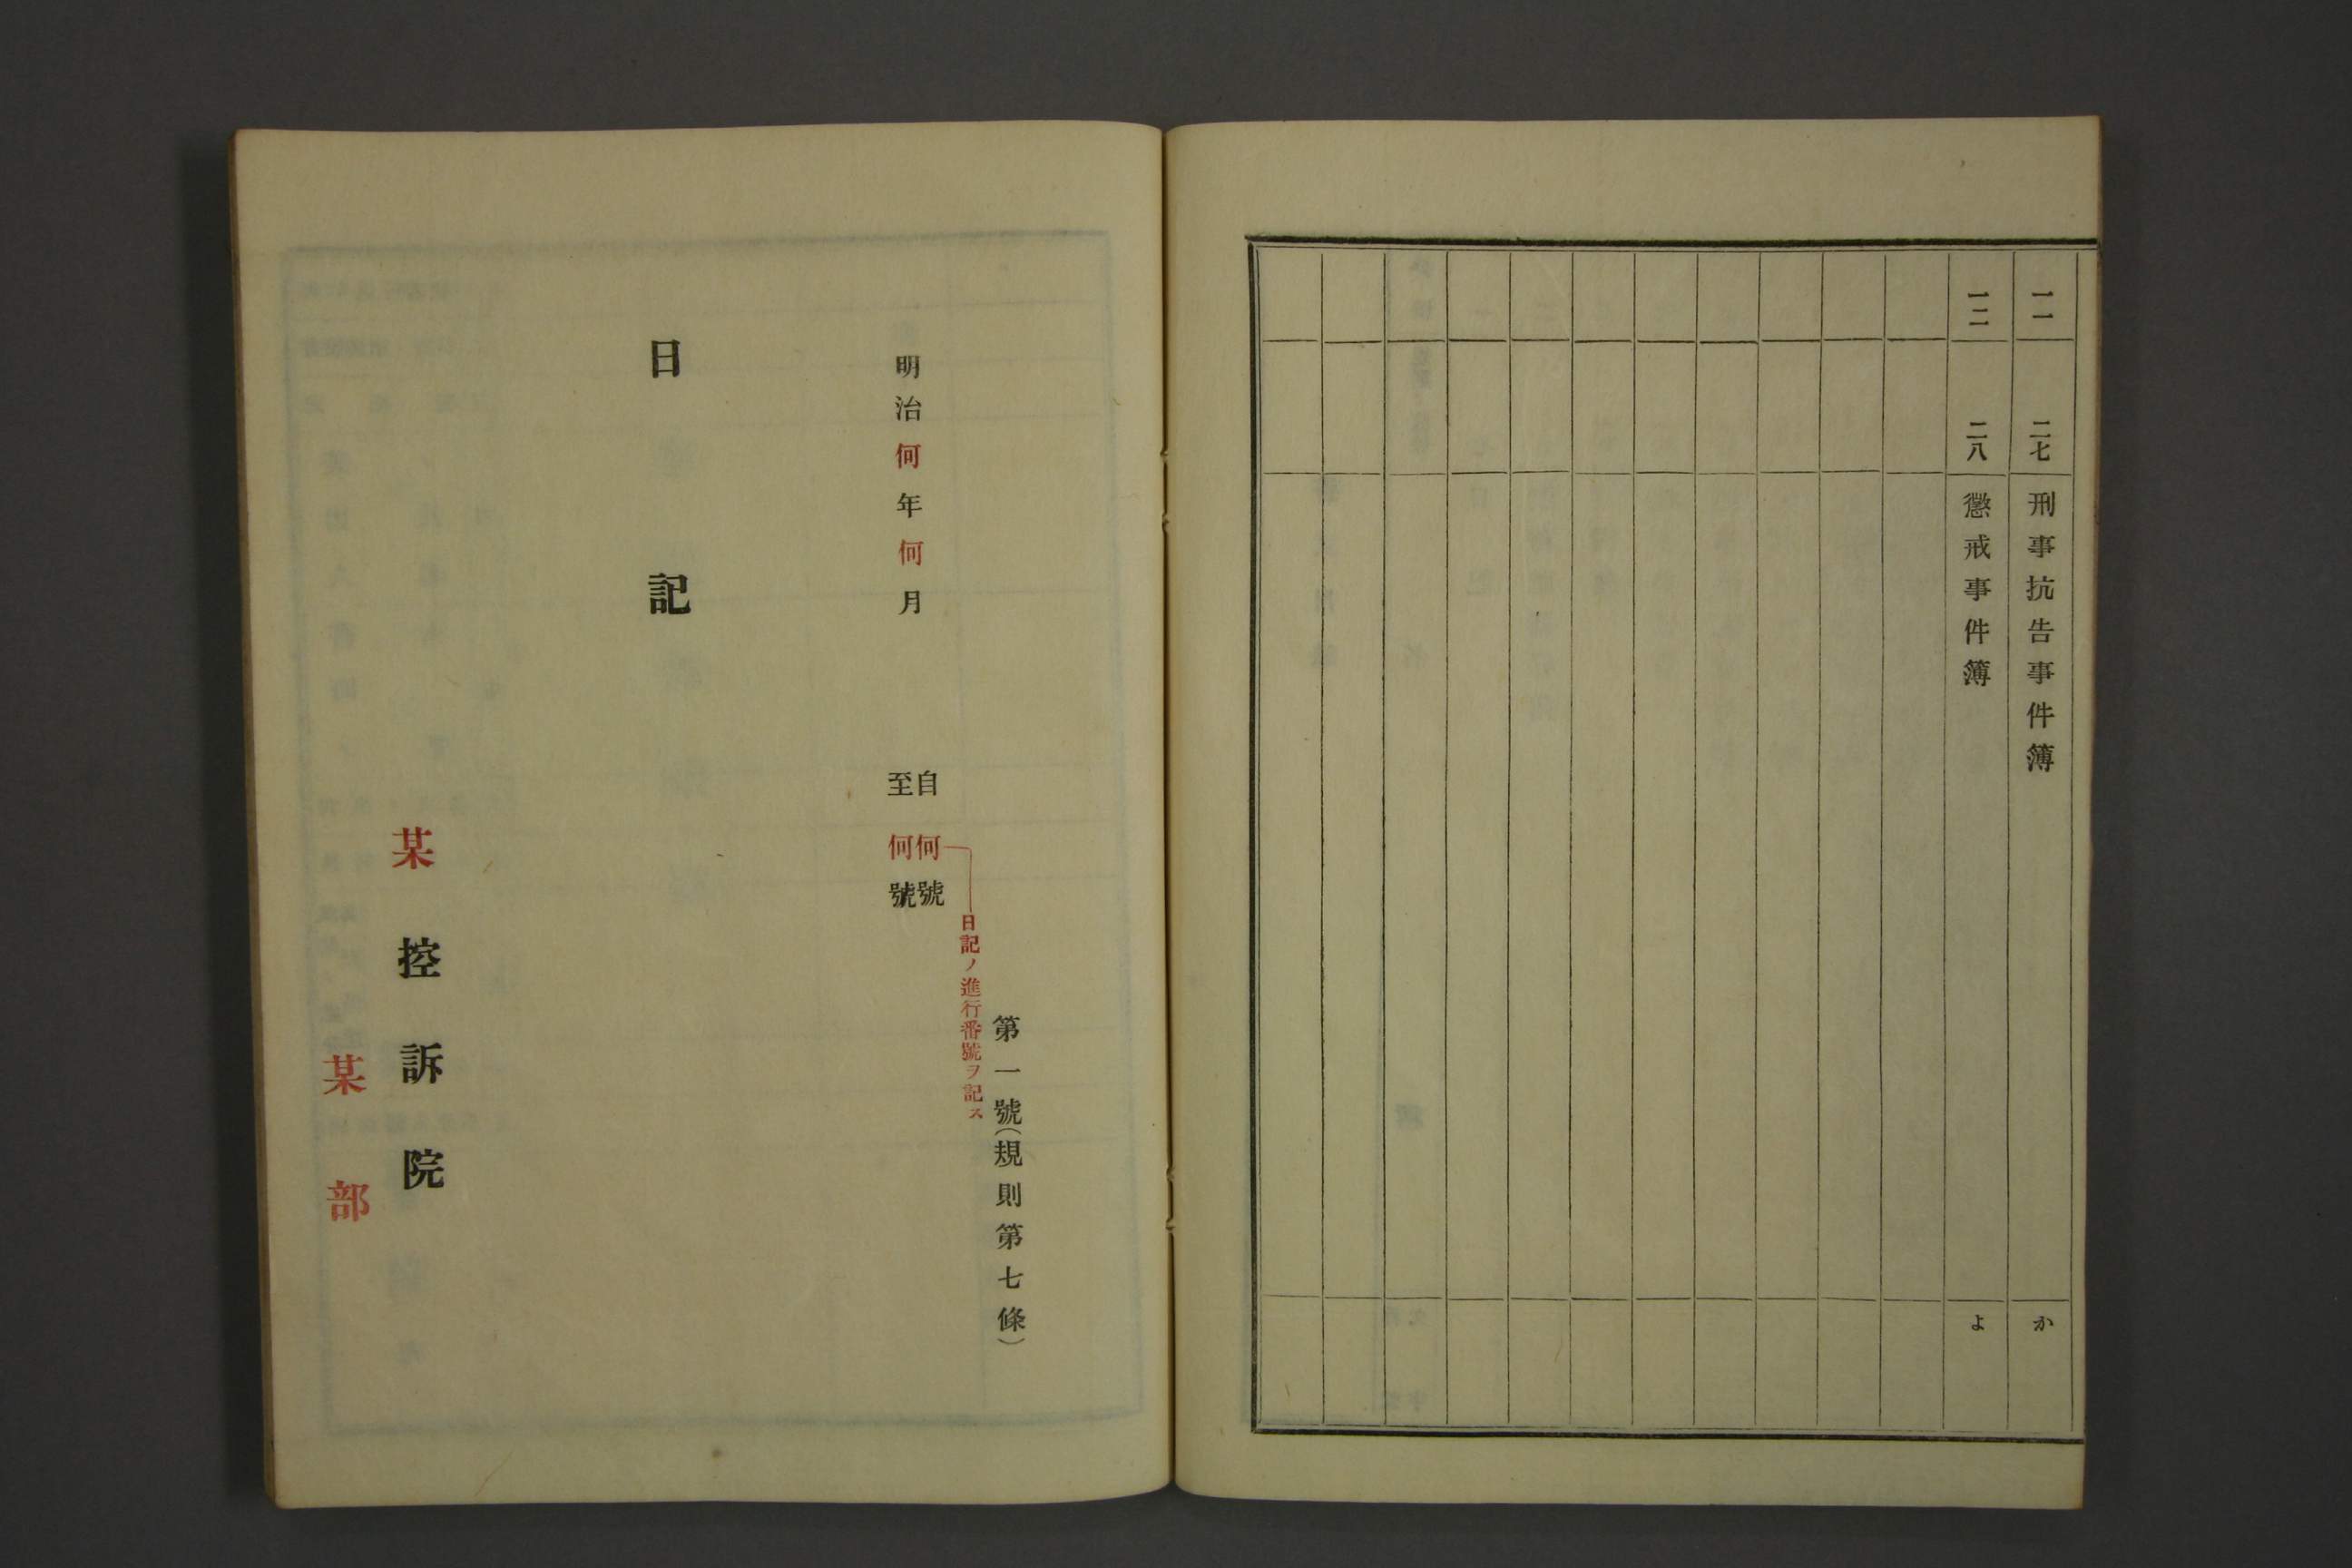 一一 二七 刑事抗告事件簿 か
一二 二八 懲戒事件簿 よ
第一號(規則第七條)
日記ノ進行番號ヲ記ス
自何號
至何號
明治何年何月
日記
某控訴院
某部